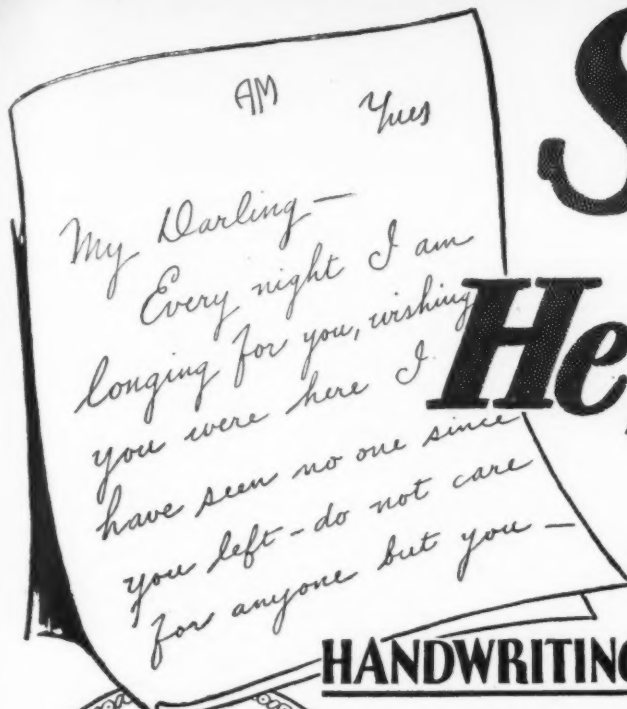 AM Tues
My Darling —
Every night I am
longing for you, wishing
you were here I
have seen no one since
you left - do not care
for anyone but you —
S
He
HANDWRITING